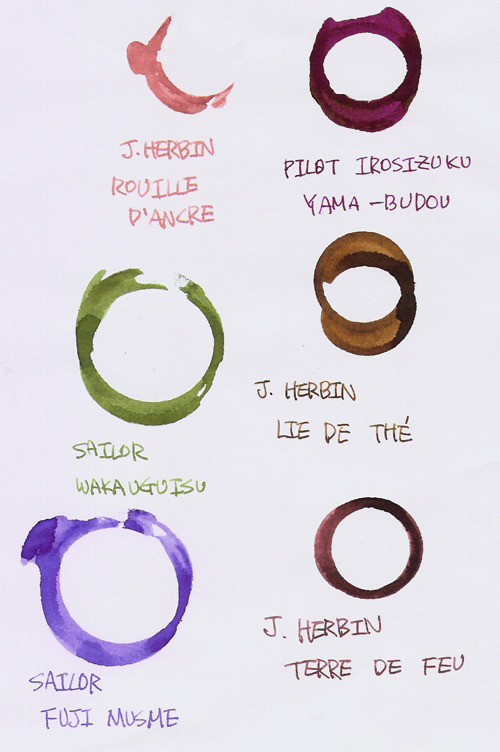 J. HERBIN
ROUILLE
D'ANCRE
PILOT IROSIZUKU
YAMA-BUDOU
SAILOR
WAKAUGUISU
J. HERBIN
LIE DE THÉ
SAILOR
FUJI MUSME
J. HERBIN
TERRE DE FEU